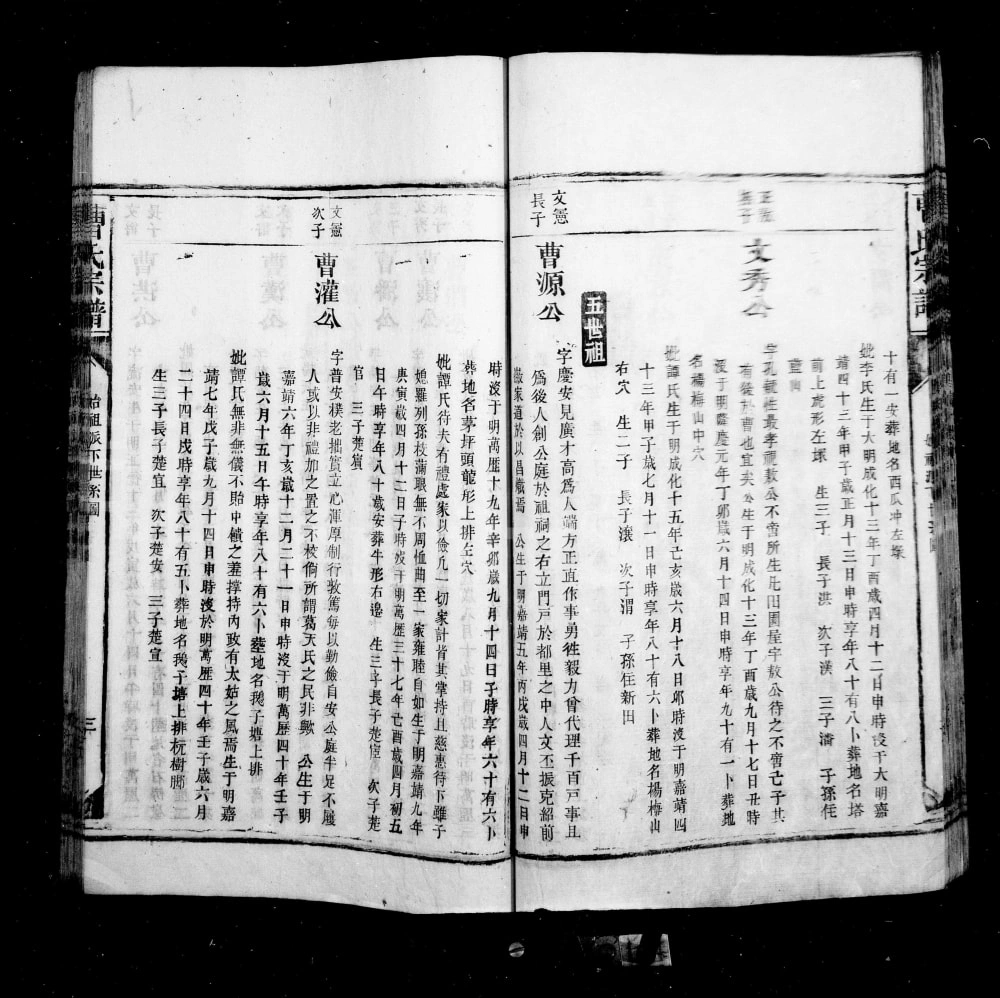 曹氏宗譜
十有一安葬地名西瓜冲左塚
妣李氏生于大明成化十三年丁酉歲四月十二日申時沒于大明嘉
靖四十三年甲子歲正月十三日申時享年八十有八卜葬地名塔
前上虎形左塚 生三子 長子洪 次子漢 三子濟 子孫住
文秀公
字孔毓性最孝視敖公不啻所生凡田園屋宇敖公待之不啻己子其
有從於曹也宜矣公生于明成化十三年丁酉歲九月十七日丑時
沒于明隆慶元年丁卯歲六月十四日申時享年九十有一卜葬地
名楊梅山中穴
妣譚氏生于明成化十五年亡亥歲六月十八日卯時沒于明嘉靖四
十三年甲子歲七月十一日申時享年八十有六卜葬地名楊梅山
右穴 生二子 長子滾 次子渭 子孫住新田
五世祖
文憲
長子
曹源公
字慶安見廣才高爲人端方正直作事勇徃毅力曾代理千百戸事且
爲後人創公庭於祖祠之右立門戸於都里之中人文丕振克紹前
徽家道於以昌熾焉 公生于明嘉靖五年丙戌歲四月十二日申
時沒于明萬歷十九年辛卯歲九月十四日子時享年六十有六卜
葬地名茅坪頭龍形上排左穴
妣譚氏待夫有禮處家以儉凢一切家計皆其掌持且慈惠待下雖子
媳羅列孫枝滿眼無不周恤曲至一家雍睦自如生于明嘉靖九年
庚寅歲四月十二日子時沒于明萬歷三十七年亡酉歲四月初五
日午時享年八十歲安葬牛形右邊 生三子長子楚宦 次子楚
官 三子楚賓
文憲
次子
曹灌公
字普安樸老拙實立心渾厚制行敦篤每以勤儉自安公庭半足不履
人或以非禮加之置之不校倘所謂葛天氏之民非歟 公生于明
嘉靖六年丁亥歲十二月二十一日申時沒于明萬歷四十年壬子
歲六月十五日午時享年八十有六卜塟地名鵝子塘上排
妣譚氏無非無儀不貽中饋之羞撐持內政有太姑之風焉生于明嘉
靖七年戊子歲九月十四日申時沒於明萬歷四十年壬子歲六月
二十四日戌時享年八十有五卜葬地名鵝子塘上排杬樹脚
生三子長子楚宜 次子楚安 三子楚宣
曹氏宗譜
始祖派下世系圖
三